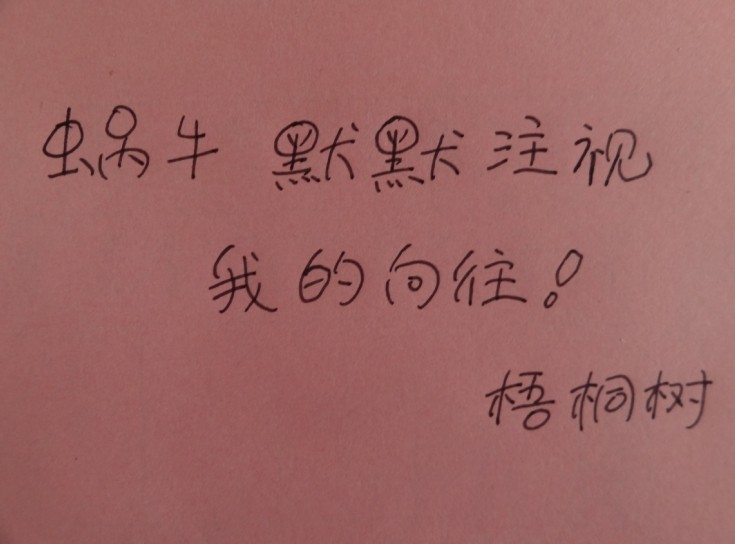 蜗牛 默默注视
我的向往!
梧桐树